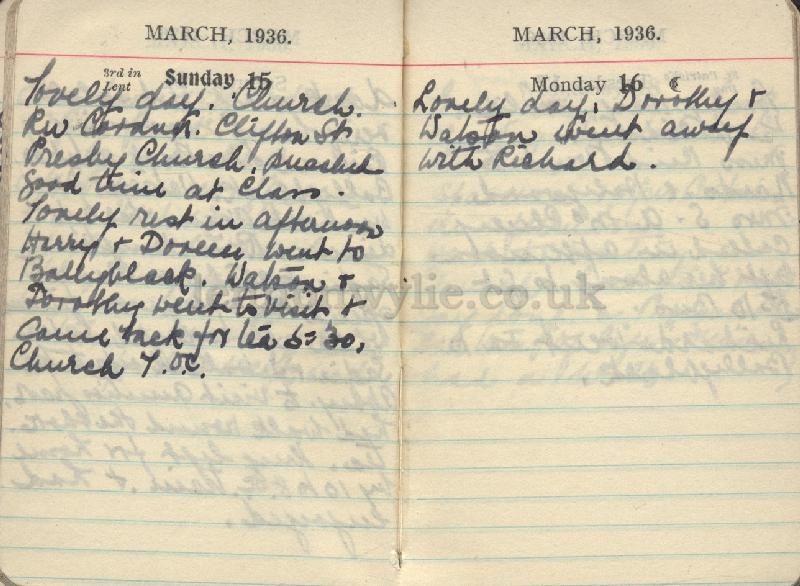 MARCH, 1936.
3rd in
Lent
Sunday 15
Lovely day. Church.
Rev Clifton St
Presby Church, preached
good time at Class.
Lovely rest in afternoon
Harry & Doreen went to
Ballyblack. Watson &
Dorothy went to visit &
came back for tea 5-30,
Church 7.OC.
MARCH, 1936.
Monday 16
Lovely day, Dorothy &
Watson went away
with Richard.
wylie.co.uk